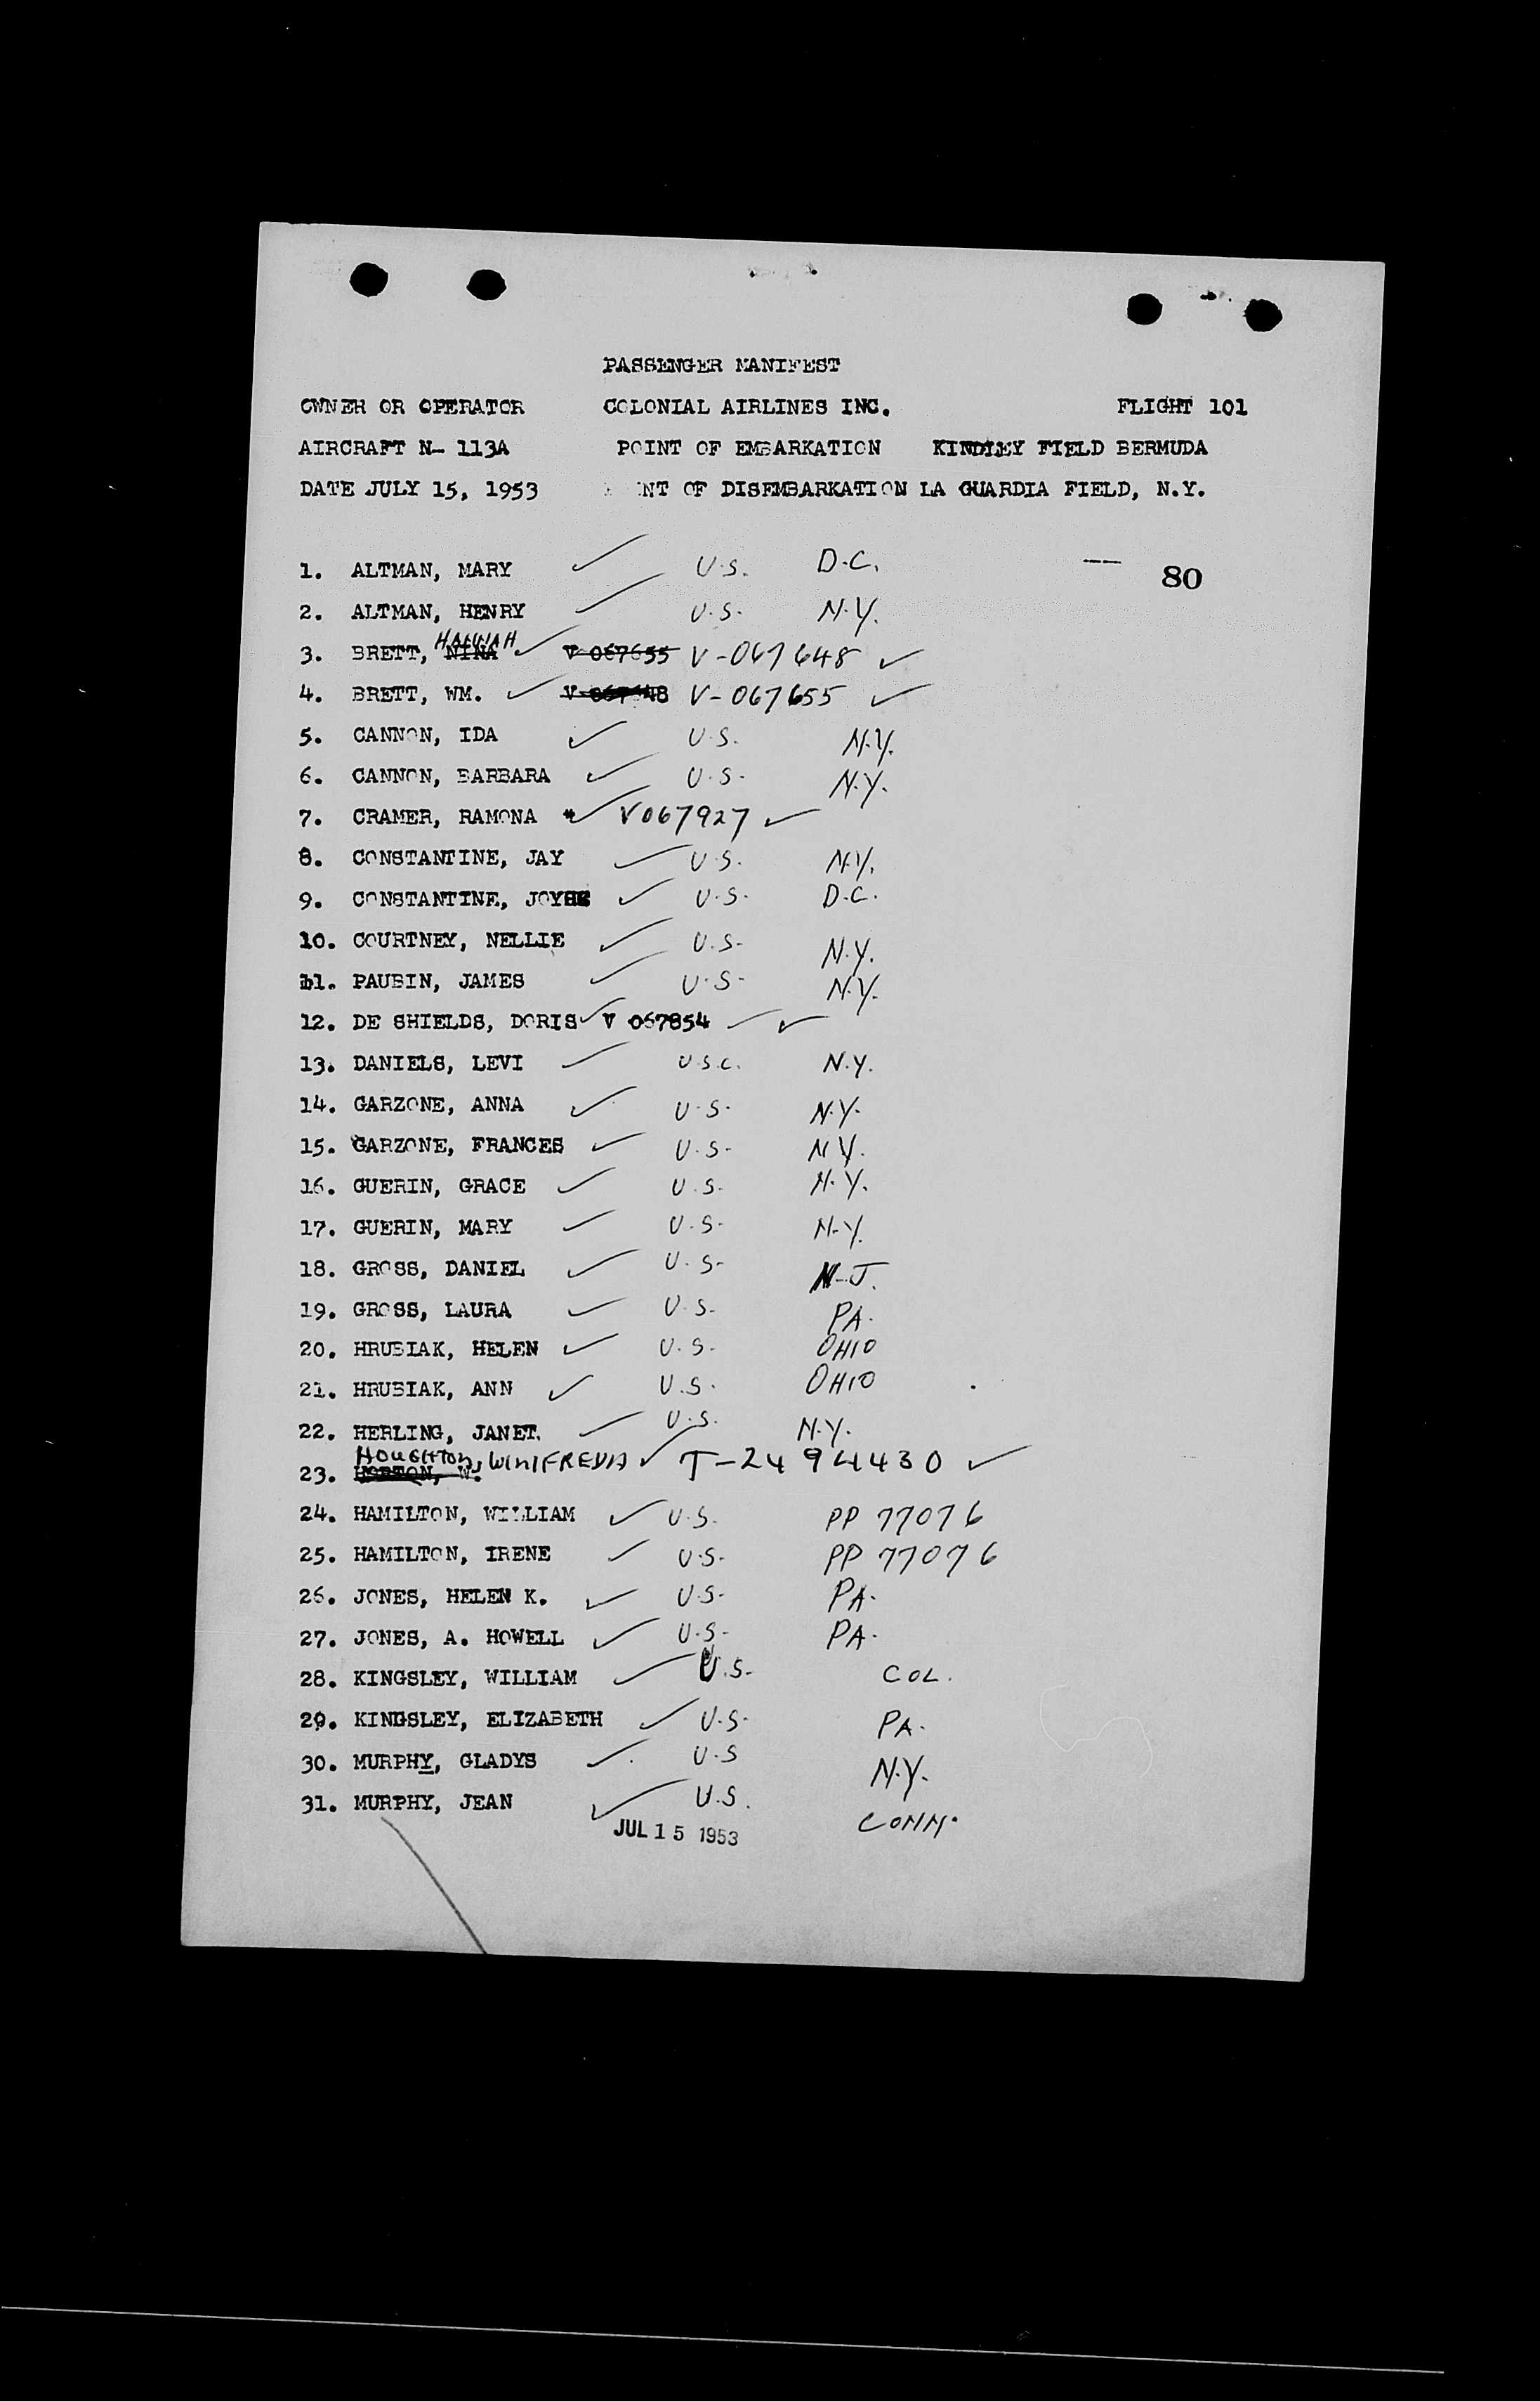 PASSENGER MANIFEST
OWNER OR OPERATOR COLONIAL AIRLINES INC. FLIGHT 101
AIRCRAFT N- 113A POINT OF EMBARKATION KINDLEY FIELD BERMUDA
DATE JULY 15, 1953 NT OF DISEMBARKATION LA GUARDIA FIELD, N.Y.
80
1. ALTMAN, MARY ✓ U.S. D.C.
2. ALTMAN, HENRY ✓ U.S. N.Y.
HANNAH
3. BRETT, NINA ✓ V 067655 V-067648 ✓
4. BRETT, WM. ✓ V 067648 V-067655 ✓
5. CANNON, IDA ✓ U.S. N.Y.
6. CANNON, BARBARA ✓ U.S. N.Y.
7. CRAMER, RAMONA ✓ V067927 ✓
8. CONSTANTINE, JAY ✓ U.S. N.Y.
9. CONSTANTINE, ✓ U.S. D.C.
10. COURTNEY, NELLIE ✓ U.S. N.Y.
11. PAUBIN, JAMES ✓ U.S. N.Y.
12. DE SHIELDS, DORIS ✓ V 067854 ✓ ✓
13. DANIELS, LEVI ✓ U.S.C. N.Y.
14. GARZONE, ANNA ✓ U.S. N.Y.
15. GARZONE, FRANCES ✓ U.S. N.Y.
16. GUERIN, GRACE ✓ U.S. N.Y.
17. GUERIN, MARY ✓ U.S. N.Y.
18. GROSS, DANIEL ✓ U.S. N.J.
19. GROSS, LAURA ✓ U.S. PA.
20. HRUBIAK, HELEN ✓ U.S. OHIO
21. HRUBIAK, ANN ✓ U.S. OHIO
22. HERLING, JANET. ✓ U.S. N.Y.
HOUGHTON, WINIFREDA ✓ T-2494430 ✓
23. HORTON, W.
24. HAMILTON, WILLIAM ✓ U.S. PP 77076
25. HAMILTON, IRENE ✓ U.S. PP 77076
26. JONES, HELEN K. ✓ U.S. PA.
27. JONES, A. HOWELL ✓ U.S. PA.
28. KINGSLEY, WILLIAM ✓ U.S. COL.
29. KINGSLEY, ELIZABETH ✓ U.S. PA.
30. MURPHY, GLADYS ✓ U.S N.Y.
31. MURPHY, JEAN ✓ U.S. CONN.
JUL 15 1953